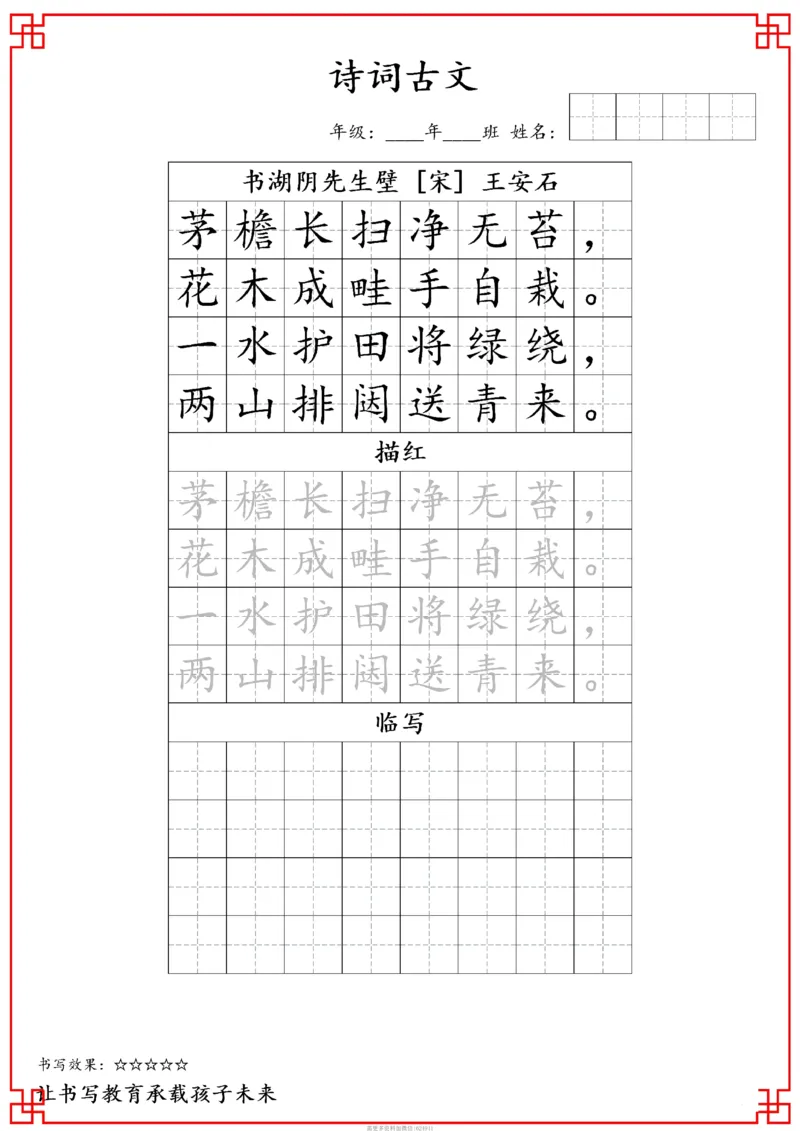 诗词古文
年级：____年____班 姓名：
书湖阴先生壁 [宋] 王安石
茅檐长扫净无苔，
花木成畦手自栽。
一水护田将绿绕，
两山排闼送青来。
描红
茅檐长扫净无苔，
花木成畦手自栽。
一水护田将绿绕，
两山排闼送青来。
临写
书写效果：☆☆☆☆☆
让书写教育承载孩子未来